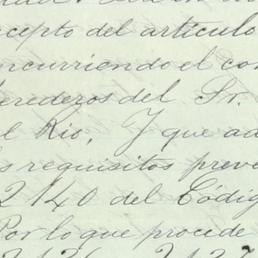 cepto del artículo
ncurriendo el con
erederos del Sr.
el Rio, Y que ad
s requisitos preve
2140 del Códig
Por lo que procede